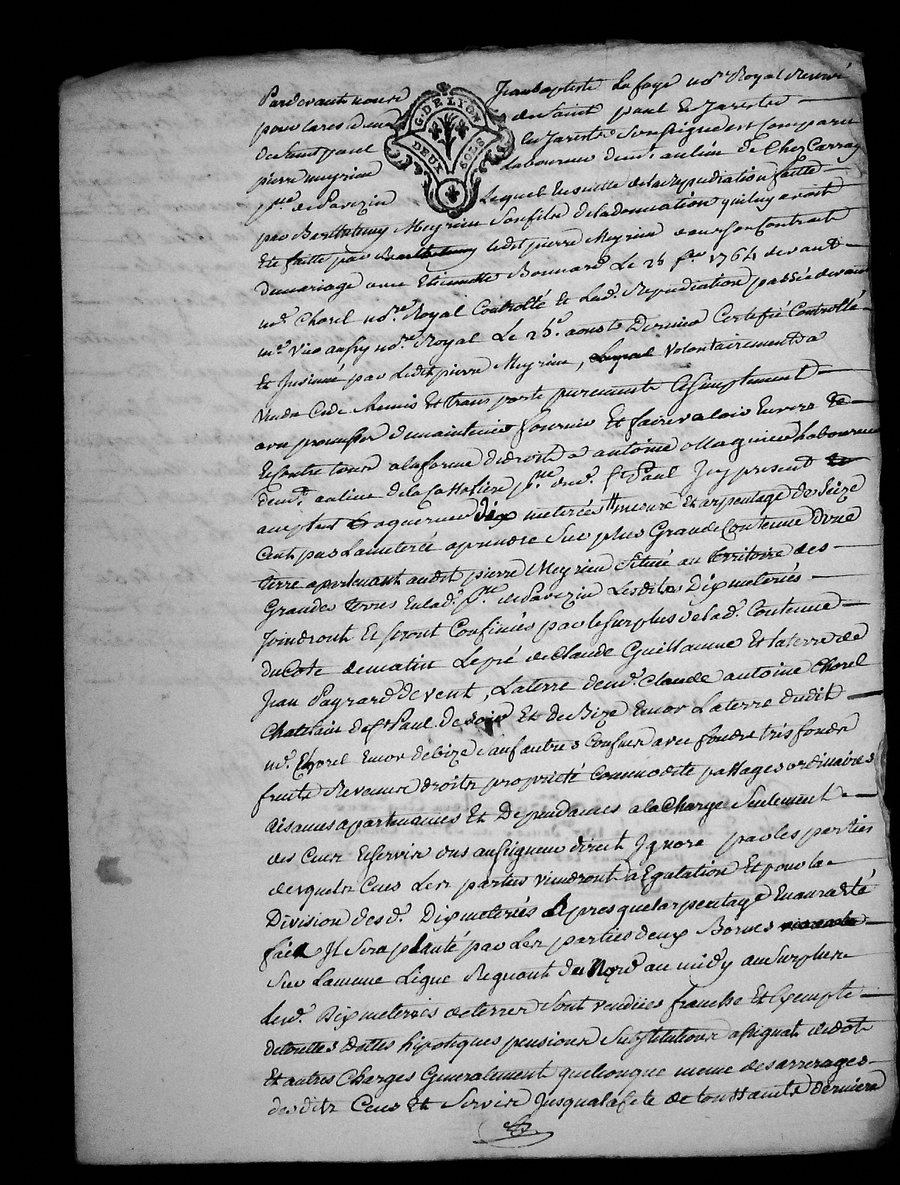 Pardevant nous Jean baptiste Lafaye no.re Royal Reservé
pour la res.ce de St paul En Jarest
de saint paul en Jarest Soussigné est Comparu
pierre Meyrieu laboureur dem.t au lieu de Chez Carray
p.sse de Pavezin Lequel Ensuitte de la repudiation faitte
par Barthelemy Meyrieu Son fils de la donnation qui luy avoit
Eté faitte par Barthelemy ledit pierre Meyrieu dans Son Contrat
de mariage avec Etiennette Bonnard Le 28 f.er 1764 devant
m.e Chorel no.re Royal Controllé Et lad. Repudiation passée devant
m.e no.re Royal Le 25.e aoust Dernier Certifié Controllé
Et Insinué par Ledit pierre Meyrieu, Lequel Volontairement a
vendu Cedé Remis Et transporté purement Et Simplement
avec promesse de maintenir fournir Et faire valoir Envers Et
Contre tous a la forme du droit a antoine Magnien Laboureur
dem.t au lieu de la p.sse dud. St Paul Icy present
acceptant Et aquerreur dix meterées mesure Et arpentage de Seize
Cent pas La meterée a prendre Sur plus Grande Contenue D'une
terre apartenant audit pierre Meyrieu Située au territoire des
Grandes terres En lad. p.sse de Pavezin Lesdites Dix meterées
Joindront Et Seront Confinées par le Surplus de lad. Contenue
du Coté de matin Le pré de Claude Guillaume Et la terre de
Jean Payrard de vent, La terre de m.e Claude antoine Chorel
Chatelain de St Paul de soir Et de Bize Encor La terre dudit
m.e Chorel Encor de bize Sauf autres Confins avec fonds tres fonds
fruits Revenus droits proprieté Commodité passages ordinaires
aisances apartenances Et Dependances a la Charge Seulement
des Cens Et Servis dus au Seigneur direct Ignoré par les parties
desquels Cens Les parties viendront a Egalation Et pour la
Division desd. Dix meterées apres que larpentage En aura eté
fait Il Sera planté par Les parties deux Bornes
Sur La meme Ligne Sequant du Nord au midy au Surplus
Lesd. Dix meterées de terres Sont vendues franche Et Exempte
de touttes Dettes hipoteques pensions Substitutions assignat de dot
Et autres Charges Generalement quelconque meme des arrerages
desdits Cens Et Servis Jusqua la fete de toussaints derniere